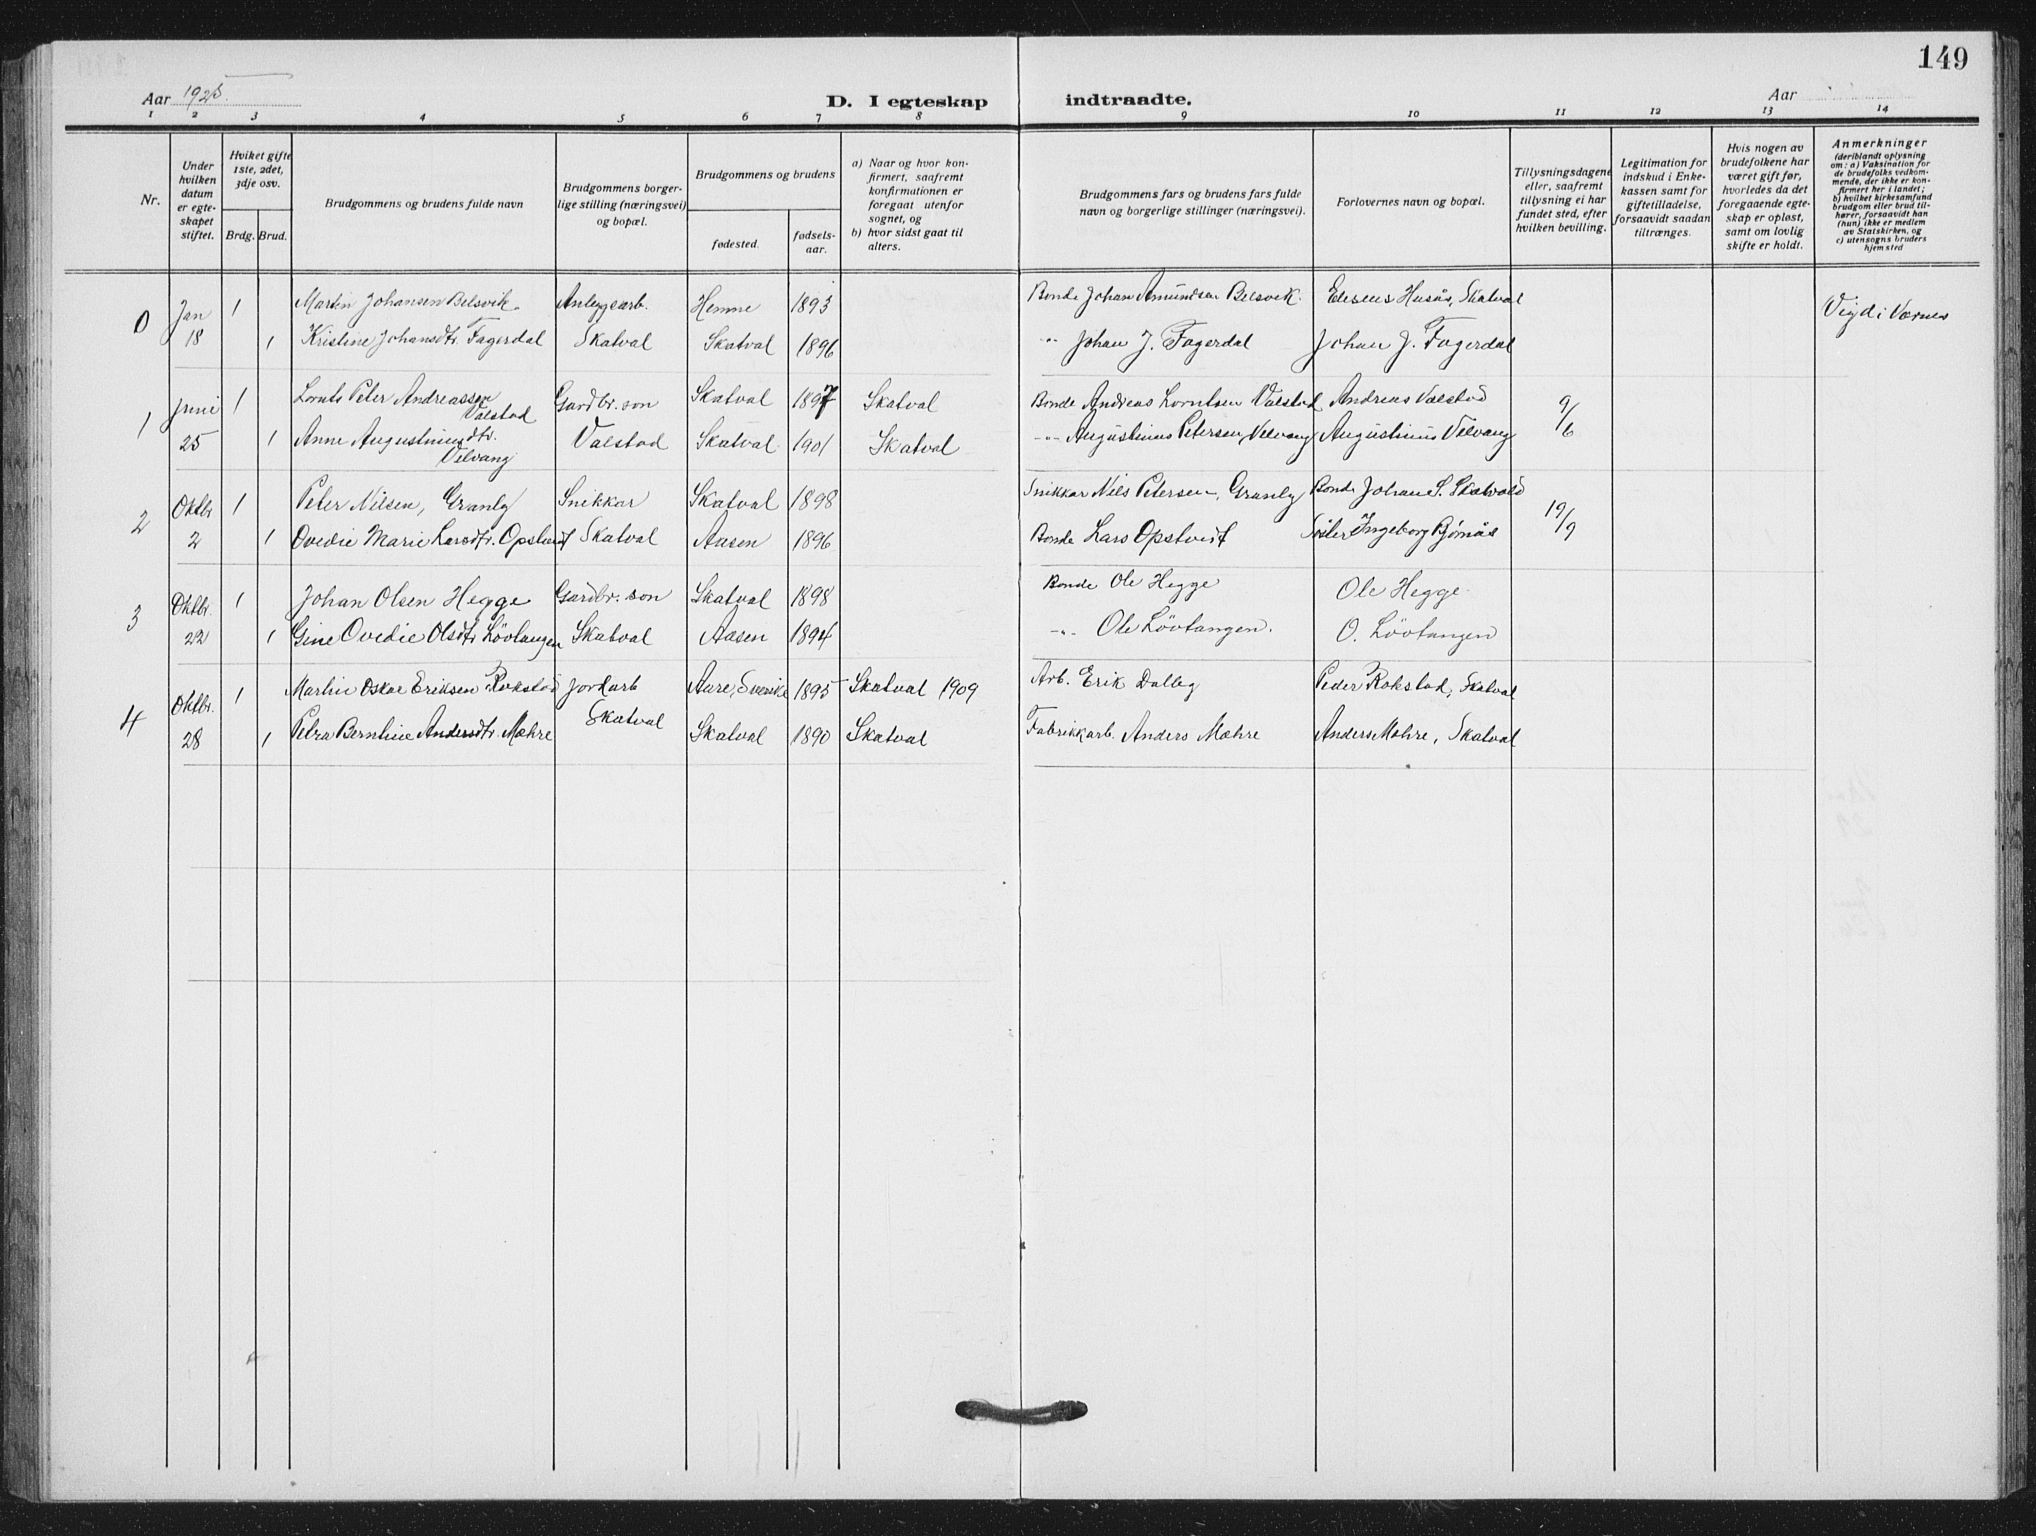 149
Aar 1925.
D. I egteskap indtraadte.
Aar
1 2 3 4 5 6 7 8 9 10 11 12 13 14
Nr.
Under hvilken datum er egteskapet stiftet.
Hviket gifte 1ste, 2det, 3dje osv.
Brdg. Brud.
Brudgommens og brudens fulde navn
Brudgommens borgerlige stilling (næringsvei) og bopæl.
Brudgommens og brudens
fødested.
fødselsaar.
a) Naar og hvor konfirmert, saafremt konfirmationen er foregaat utenfor sognet, og
b) hvor sidst gaat til alters.
Brudgommens fars og brudens fars fulde navn og borgerlige stillinger (næringsvei).
Forlovernes navn og bopæl.
Tillysningsdagene eller, saafremt tillysning ei har fundet sted, efter hvilken bevilling.
Legitimation for indskud i Enkekassen samt for giftetilladelse, forsaavidt saadan tiltrænges.
Hvis nogen av brudefolkene har været gift før, hvorledes da det foregaaende egteskap er opløst, samt om lovlig skifte er holdt.
Anmerkninger (deriblandt oplysning om: a) Vaksination for de brudefolks vedkommende, der ikke er konfirmert her i landet; b) hvilket kirkesamfund brudgom eller brud tilhører, forsaavidt han (hun) ikke er medlem av Statskirken, og c) utensogns bruders hjemsted
0 Jan 1 Martin Johansen Belsvik. Anleggsarb. Hemne 1893 Bonde Johan Amundsen Belsvik. Eliseus Husås, Skatval Vigd i Værnes
18 1 Kristine Johansdtr. Fagerdal Skatval Skatval 1896 -"- Johan J. Fagerdal Johan J. Fagerdal
1 Juni 1 Lornts Peter Andreassen Valstad Gardbr. son Skatval 1897 Skatval Bonde Andreas Lorntsen Valstad Andreas Valstad 9/6
25 1 Anne Augustinusdtr. Velvang Valstad Skatval 1901 Skatval -"- Augustinus Petersen Velvang Augustinus Velvang
2 Oktbr 1 Peter Nilsen, Granly Snikkar Skatval 1898 Snikkar Nils Petersen, Granly Bonde Johan S. Skatvold 19/9
2 1 Ovedie Marie Larsdtr. Opstveit Skatval Aasen 1896 Bonde Lars Opstveit Ingeborg Bjømås
3 Oktbr. 1 Johan Olsen Hegge Gardbr. son Skatval 1898 Bonde Ole Hegge Ole Hegge
22 1 Gine Ovedie Olsdtr. Lövtangen Skatval Aasen 1894 -"- Ole Lövtangen. O. Lövtangen
4 Oktbr. 1 Martin Oskar Eriksen Rokstad Jordarb Aare, Sverike 1895 Skatval 1909 Arb. Erik Dalby Peder Rokstad, Skatval
28 1 Petra Berntine Andersdtr. Mæhre Skatval Skatval 1890 Skatval Fabrikkarb. Anders Mæhre Anders Mæhre, Skatval